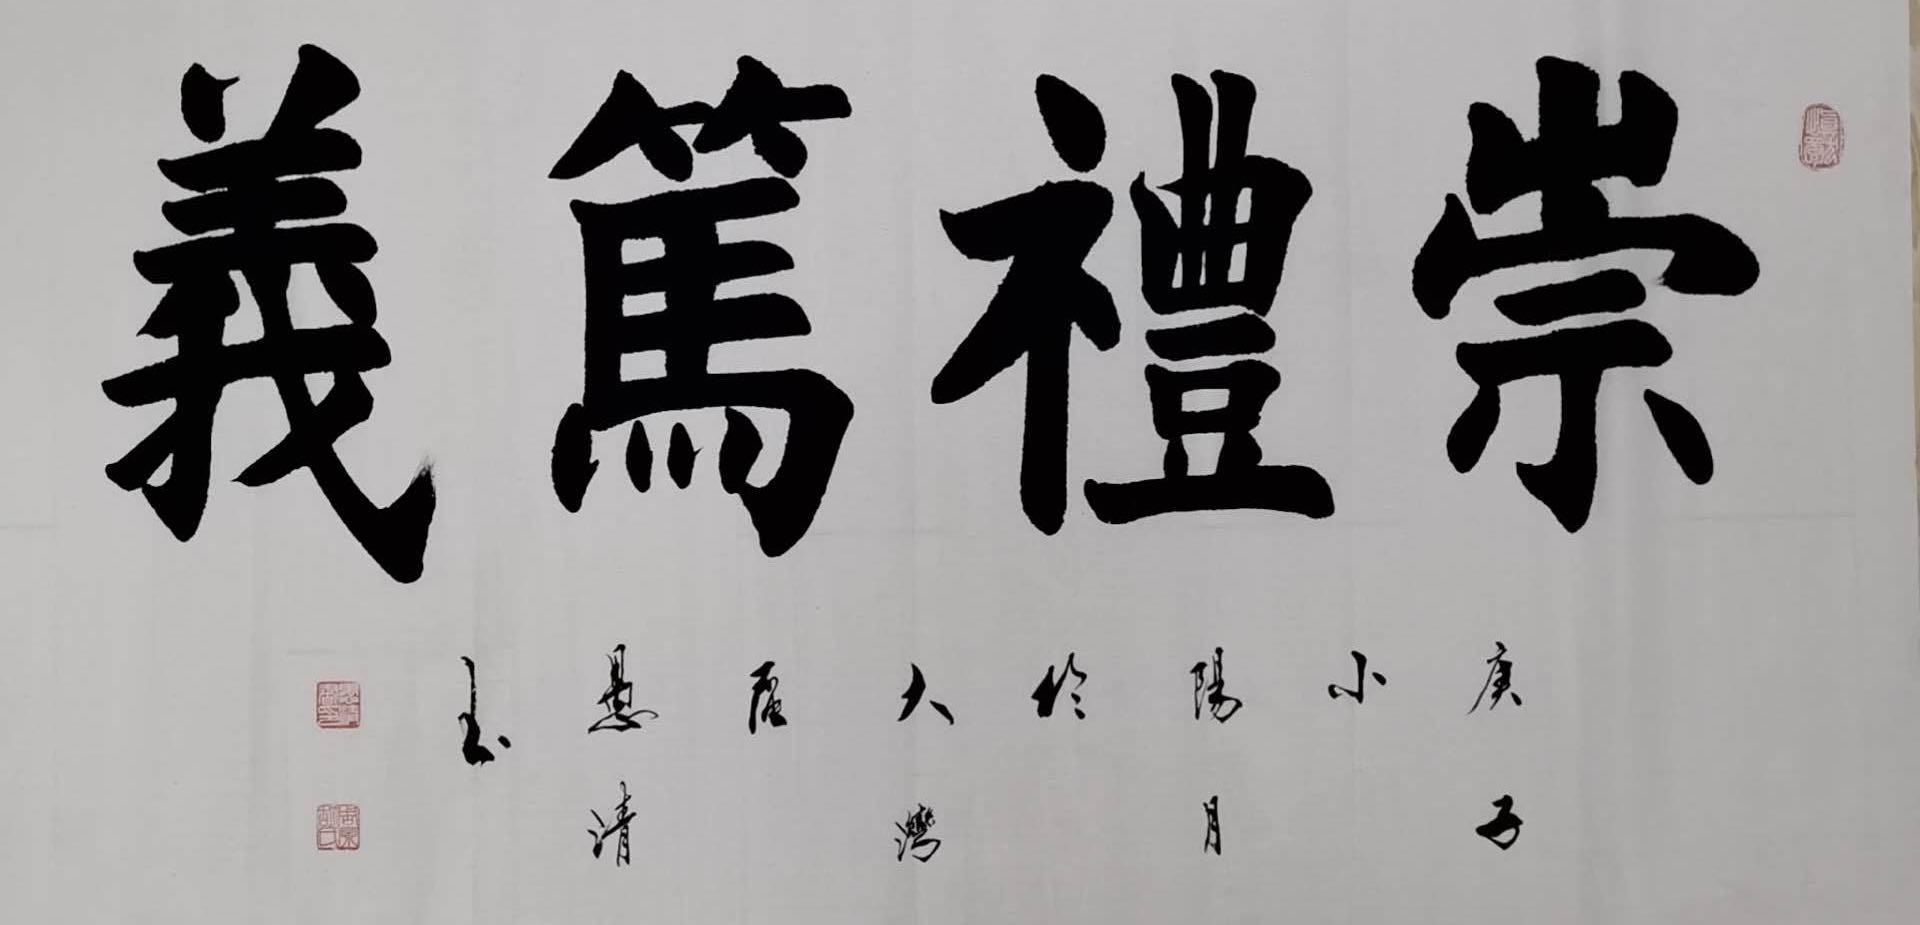 崇禮篤義
庚子小陽月於大灣區 清玉